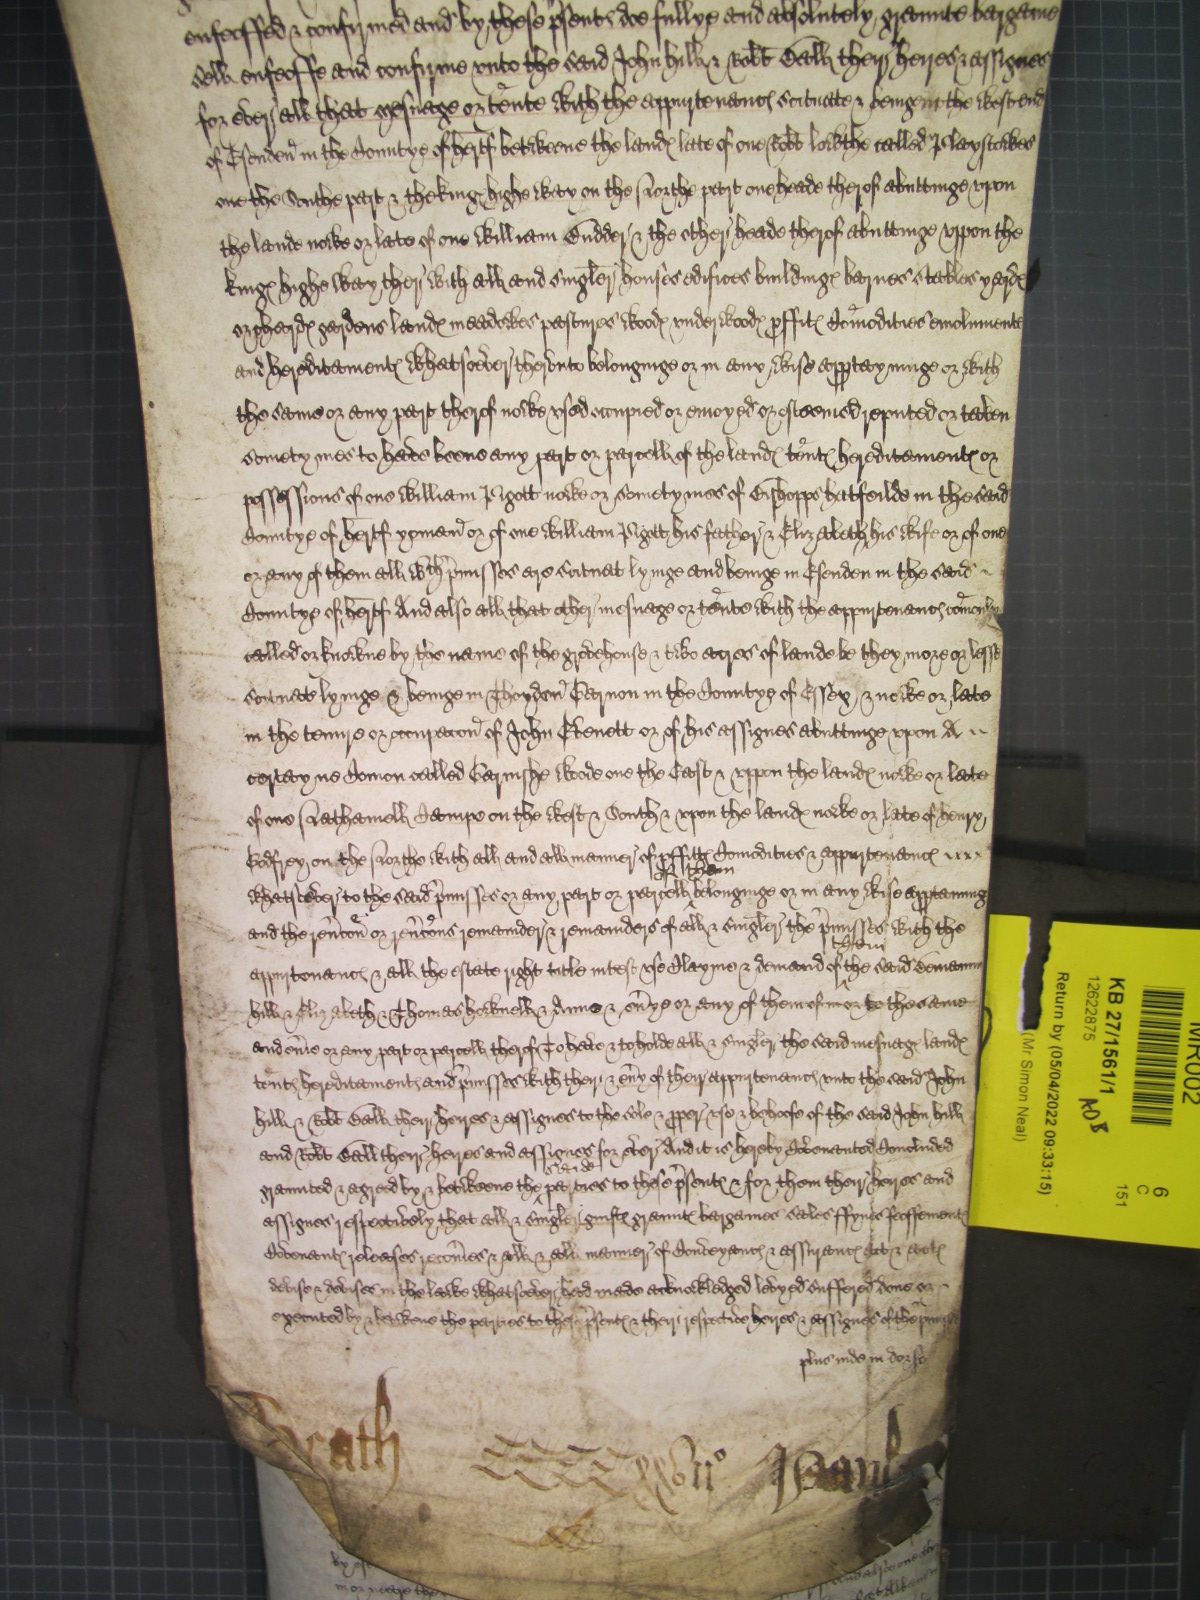 enfeoffed & confirmed and by these psents doe fullye and absolutely graunte bargaine
sell enfeoffe and confirme unto the said John hill & Robt Ball their heires & assignes
for ever all that mesuage or tente with the appurtenancs scituate & beinge in the west end
of Esenden in the Countye of hertf betweene the lands late of one Robt called Playstowes
one the Southe part & the kings highe way on the Northe part one heade therof abuttinge upon
the lande nowe or late of one william Tudder & the other heade therof abuttinge uppon the
kings highe way ther with all and singler houses edifices buildings barnes stables yards
orchards gardens lands meadowes pastures woods underwoods pffits Comodities emolumente
and hereditaments whatsoever therunto belonginge or in any wise apptayninge or with
the same or any part therof nowe used occupied or enioyed or esteemed reputed or taken
sometymes to have beene any part or parcell of the lands tents hereditaments or
possessions of one william Pigott nowe or sometymes of Bishopps hatfeilde in the said
Countye of hertf yoman or of one william Pigott his father & Elizabeth his wife or of one
or any of them all wch pmisses are scituat lyinge and beinge in Esenden in the said
Countye of hertf And also all that other mesuage or tente with the appurtenancs comonly
called or knowne by the name of the & two acres of lande be they more or lesse
scituate lyinge & beinge in Thoydon Garnon in the Countye of Essex & nowe or late
in the tenure or occupacon of John or of his assignes abuttinge upon A
certayne Comon called woode one the East & uppon the lands nowe or late
of one Nathaniell on the West & South & upon the lands nowe or late of henry
Godfrey on the Northe with all and all manner of pffitts Comodities & appurtenancs
of them
whatsoever to the said pmisses or any part or parcell belonginge or in any wise apptaining
and the revcon or revcons remainder & remainders of all & singler the pmisses with the
them
appurtenancs & all the estate right title intest use Clayme & demand of the said
hill & Elizabeth & Thomas & Anne & evye or any of them of in or to the same
and evie or any part or parcell therof To have & to holde all & singler the said mesuags lands
tents hereditaments and pmisses with their & evy of their appurtenancs unto the said John
hill & Robt Ball their heires & assignes to the sole & pper use & behoofe of the said John hill
and Robt Ball their heires and assignes for ever And it is hereby Covenanted Concluded
said
graunted & agreed by & betweene the parties to these psents & for them their heires and
assignes respectively that all & singler guifts graunts bargaines sales ffynes feoffements
Covenants releases recovies & all & all manner of Conveyancs & assurancs acte & acts
devise & devises in the lawe whatsoever had made acknowledged levyed suffered done or
executed by & betwene the parties to these psents & their respective heires & assignes of the pmisses
plus inde in dorso
Heath CCCCxxvii°
KB 27/1561/1
12622875
Return by (05/04/2022 09:33:15)
(Mr Simon Neal)
MR002
6
C
151